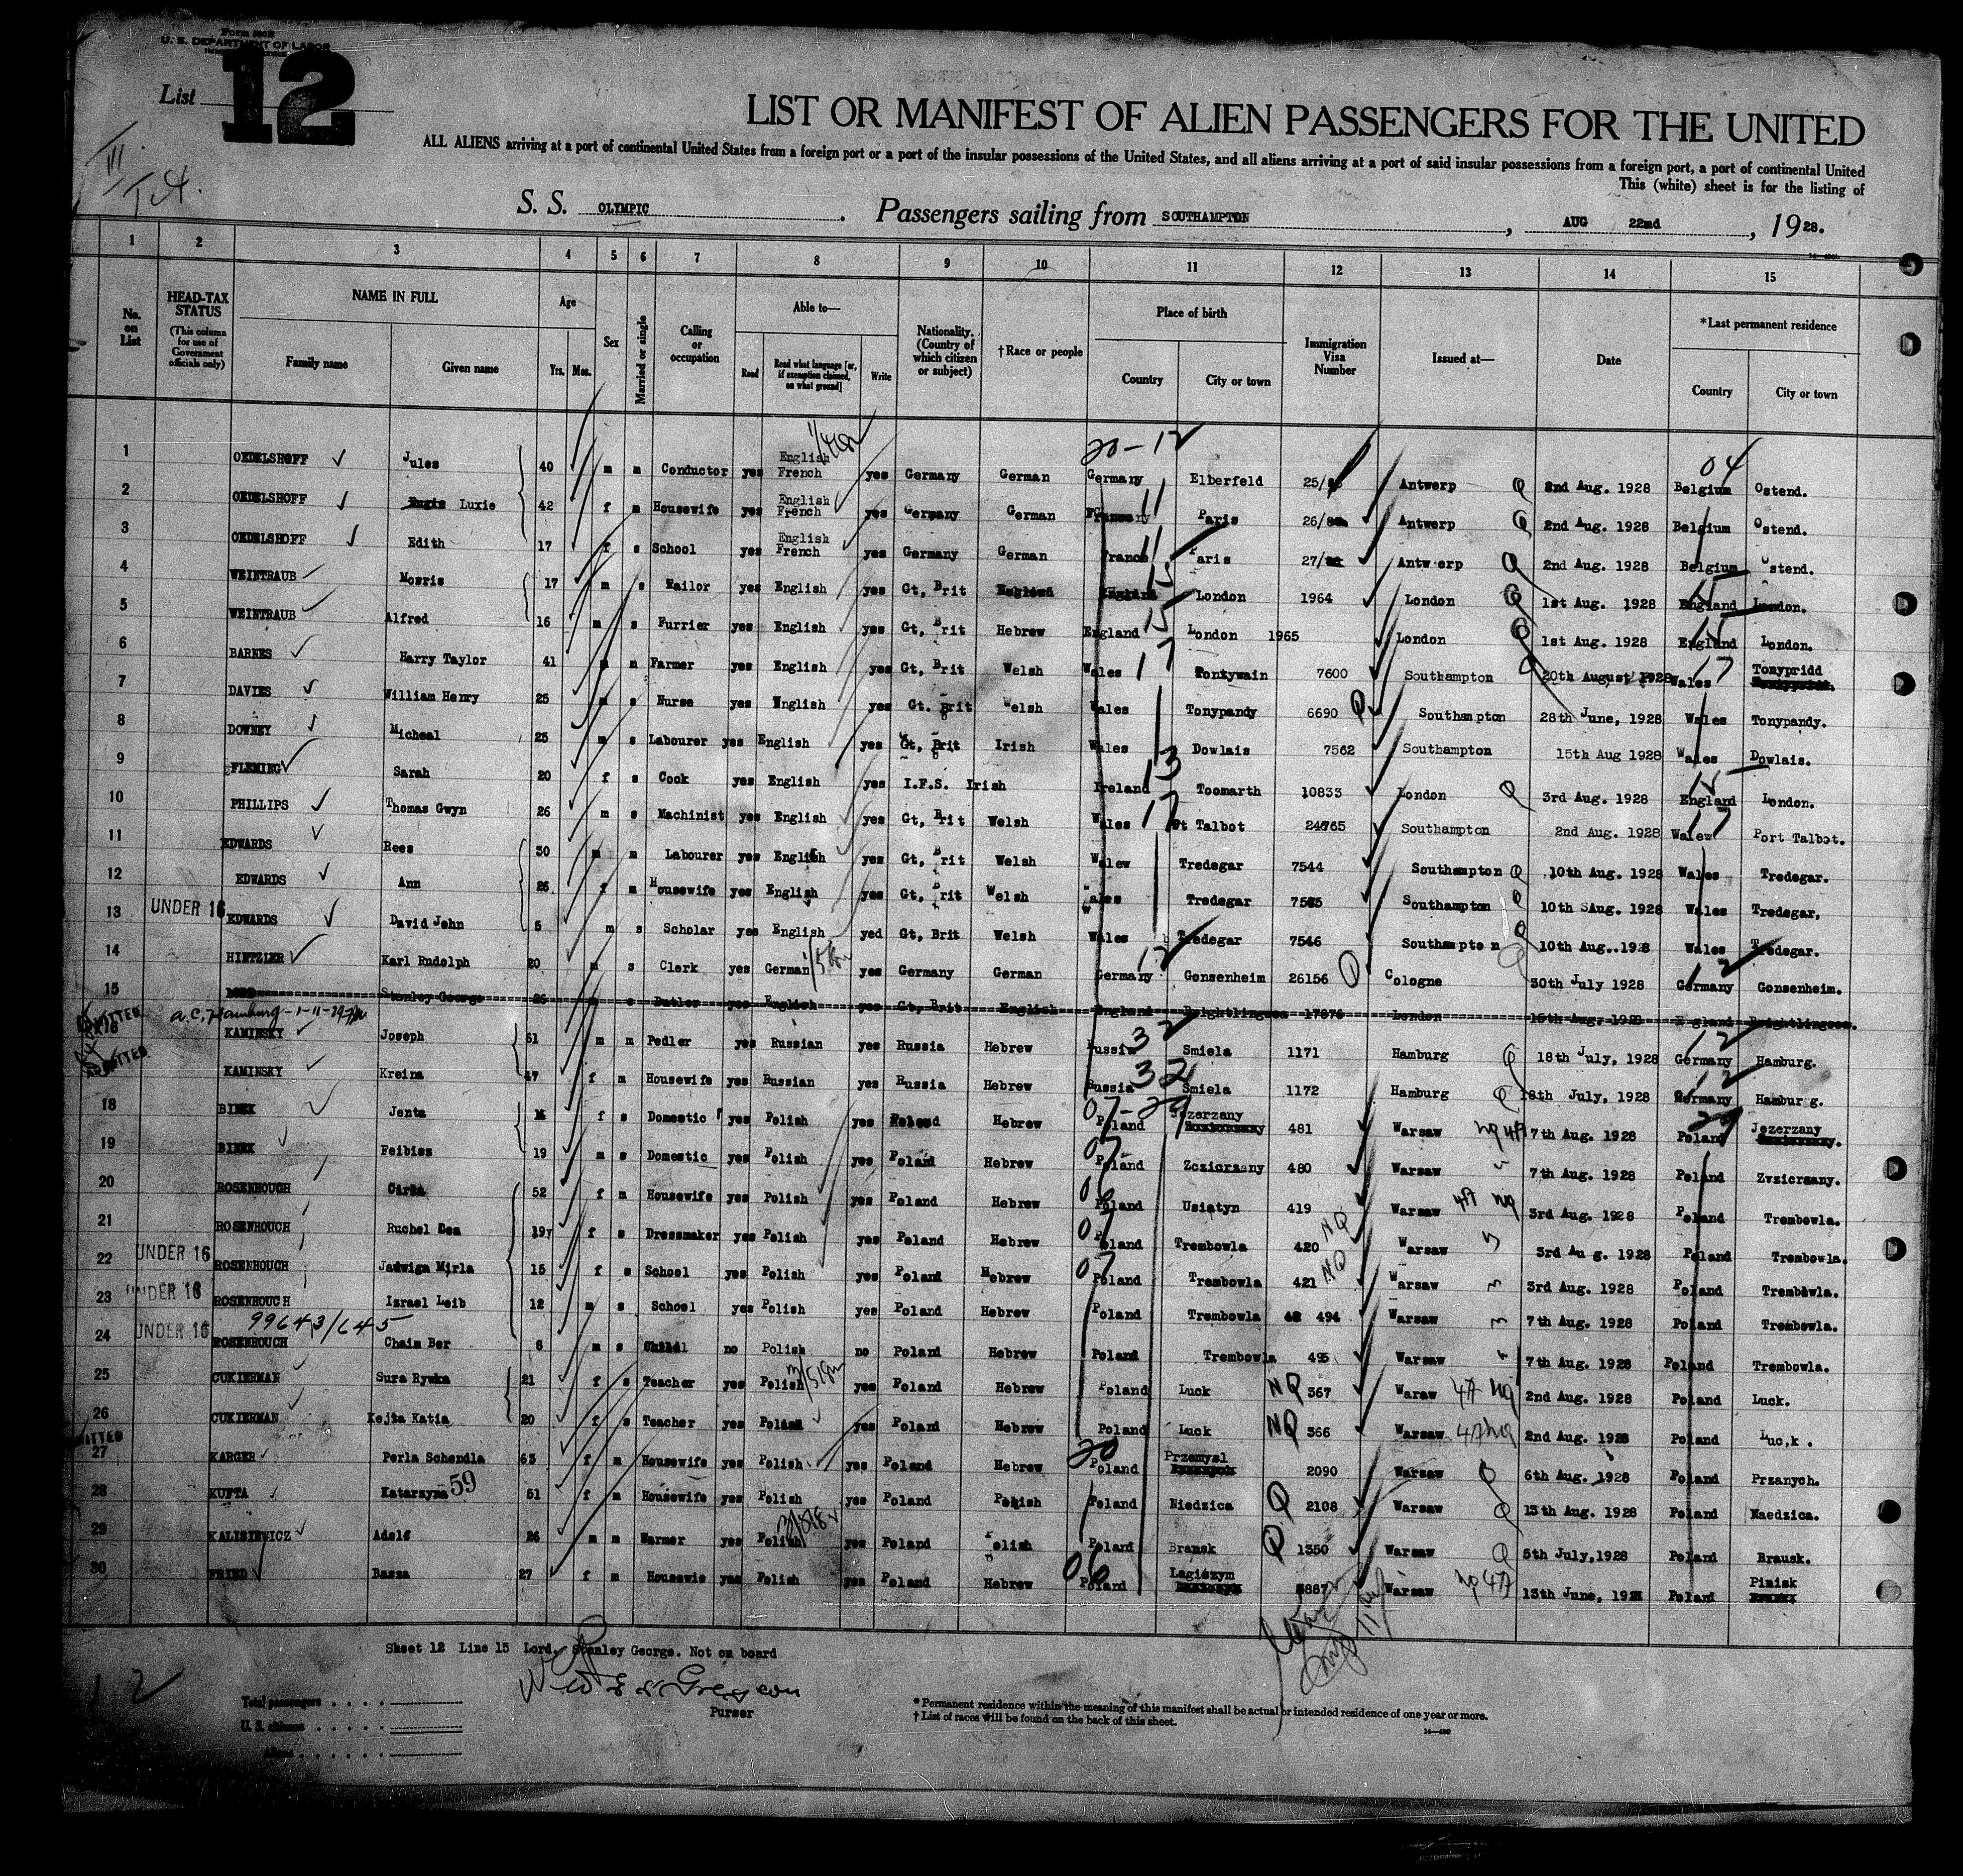 Form 500B
U. S. DEPARTMENT OF LABOR
List 12
LIST OR MANIFEST OF ALIEN PASSENGERS FOR THE UNITED
ALL ALIENS arriving at a port of continental United States from a foreign port or a port of the insular possessions of the United States, and all aliens arriving at a port of said insular possessions from a foreign port, a port of continental United
This (white) sheet is for the listing of
S. S. OLYMPIC. Passengers sailing from SOUTHAMPTON, AUG 22nd, 1928.
1 2 3 4 5 6 7 8 9 10 11 12 13 14 15
No. on List
HEAD-TAX STATUS (This column for use of Government officials only)
NAME IN FULL Family name Given name
Age Yrs. Mos.
Sex
Married or single
Calling or occupation
Able to— Read Read what language [or, if exemption claimed, on what ground] Write
Nationality. (Country of which citizen or subject)
†Race or people
Place of birth Country City or town
Immigration Visa Number
Issued at—
Date
*Last permanent residence Country City or town
1 OEDELSHOFF Jules 40 m m Conductor yes English French yes Germany German Germany Elberfeld 25/ Antwerp 2nd Aug. 1928 Belgium Ostend.
2 OEDELSHOFF Luxie 42 f m Housewife yes English French yes Germany German Paris 26/ Antwerp 2nd Aug. 1928 Belgium Ostend.
3 OEDELSHOFF Edith 17 f s School yes English French yes Germany German France Paris 27/ Antwerp 2nd Aug. 1928 Belgium Ostend.
4 WEINTRAUB Morris 17 m s Tailor yes English yes Gt, Brit England London 1964 London 1st Aug. 1928 England London.
5 WEINTRAUB Alfred 16 m s Furrier yes English yes Gt, Brit Hebrew England London 1965 London 1st Aug. 1928 England London.
6 BARNES Harry Taylor 41 m m Farmer yes English yes Gt, Brit Welsh Wales Pontywain 7600 Southampton 20th August 1928 Wales Tonypridd
7 DAVIES William Henry 25 m s Nurse yes English yes Gt. Brit Welsh Wales Tonypandy 6690 Southampton 28th June, 1928 Wales Tonypandy.
8 DOWNEY Micheal 25 m s Labourer yes English yes Gt, Brit Irish Wales Dowlais 7562 Southampton 15th Aug 1928 Wales Dowlais.
9 FLEMING Sarah 20 f s Cook yes English yes I.F.S. Irish Ireland Toomarth 10833 London 3rd Aug. 1928 England London.
10 PHILLIPS Thomas Gwyn 26 m s Machinist yes English yes Gt, Brit Welsh Wales Pt Talbot 24765 Southampton 2nd Aug. 1928 Wales Port Talbot.
11 EDWARDS Rees 30 m m Labourer yes English yes Gt, Brit Welsh Walew Tredegar 7544 Southampton 10th Aug. 1928 Wales Tredegar.
12 EDWARDS Ann 26 f m Housewife yes English yes Gt, Brit Welsh Wales Tredegar 7545 Southampton 10th SAug. 1928 Wales Tredegar,
UNDER 16
13 EDWARDS David John 5 m s Scholar yes English yed Gt, Brit Welsh Wales Tredegar 7546 Southampton 10th Aug..1928 Wales Tredegar.
14 HINTZIER Karl Rudolph 20 m s Clerk yes German yes Germany German Germany Gonsenheim 26156 Cologne 30th July 1928 Germany Gonsenheim.
15 Stanley George 26 m s Butler yes English yes Gt, Brit English England Brightlingsea 17876 London 15th Aug. 1928 England Brightlingsea.
a.c, Hamburg-1-11-29
KAMINSKY Joseph 51 m m Pedler yes Russian yes Russia Hebrew Russia Smiela 1171 Hamburg 18th July, 1928 Germany Hamburg.
KAMINSKY Kreina 47 f m Housewife yes Russian yes Russia Hebrew Russia Smiela 1172 Hamburg 18th July, 1928 Germany Hamburg.
18 BINEK Jenta f s Domestic yes Polish yes Poland Hebrew Poland Jezerzany 481 Warsaw 7th Aug. 1928 Poland Jezerzany
19 BINEK Feibiss 19 m s Domestic yes Polish yes Poland Hebrew Poland Zcziczany 480 Warsaw 7th Aug. 1928 Poland Zvziczany.
20 ROSENHOUCH 52 f m Housewife yes Polish yes Poland Hebrew Poland Usiatyn 419 Warsaw 3rd Aug. 1928 Poland Trembowla.
21 ROSENHOUCH Ruchel Dea 19 f s Dressmaker yes Polish yes Poland Hebrew Poland Trembowla 420 Warsaw 3rd Aug. 1928 Poland Trembowla.
UNDER 16
22 ROSENHOUCH Jadwiga Mirla 15 f s School yes Polish yes Poland Hebrew Poland Trembowla 421 Warsaw 3rd Aug. 1928 Poland Trembowla.
UNDER 16
23 ROSENHOUCH Izrael Leib 12 m s School yes Polish yes Poland Hebrew Poland Trembowla 494 Warsaw 7th Aug. 1928 Poland Trembowla.
99643/645
UNDER 16
24 ROSENHOUCH Chaim Ber 8 m s Child no Polish no Poland Hebrew Poland Trembowla 495 Warsaw 7th Aug. 1928 Poland Trembowla.
25 CUKIERMAN Sura Rywka 21 f s Teacher yes Polish yes Poland Hebrew Poland Luck NQ 367 Waraw 2nd Aug. 1928 Poland Luck.
26 CUKIERMAN Kejta Katia 20 f s Teacher yes Poland yes Poland Hebrew Poland Luck NQ 366 Warsaw 2nd Aug. 1928 Poland Luc,k .
27 KARGER Perla Schendla 63 f m Housewife yes Polish yes Poland Hebrew Poland Przemysl 2090 Warsaw 6th Aug. 1928 Poland Przanych.
28 KUPTA Katarzyna 59 51 f m Housewife yes Polish yes Poland Polish Poland Niedzica Q 2108 Warsaw 13th Aug. 1928 Poland Naedzica.
29 KALISIEWICZ Adolf 26 m m Warmer yes Polish yes Poland Polish Poland Bransk Q 1350 Warsaw 5th July,1928 Poland Brausk.
30 FRIED Bassa 27 f m Housewie yes Polish yes Poland Hebrew Poland Lagiszym 887 Warsaw 13th June, 1928 Poland Pinisk
Sheet 12 Line 15 Lord. Stanley George. Not on board
Purser
12
Total passengers
U. S. citizens
Aliens
* Permanent residence within the meaning of this manifest shall be actual or intended residence of one year or more.
† List of races will be found on the back of this sheet.